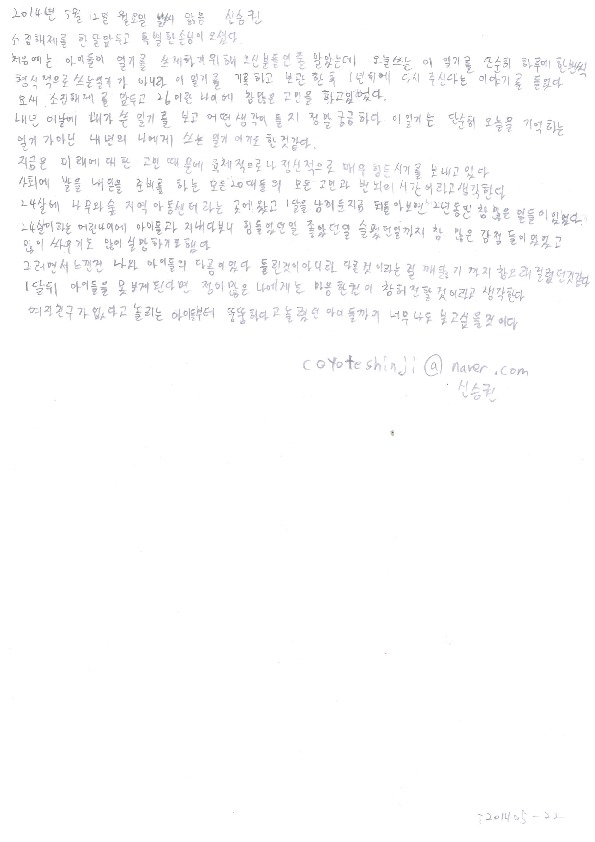 2014년 5월 12일 월요일 날씨 맑음 신승권
소집해제를 한달앞두고 특별한손님이 오셨다.
처음에는 아이들이 일기를 쓰게하기위해 오신분들인줄 알았는데 오늘쓰는 이 일기를 단순히 하루에 한번씩
형식적으로 쓰는일기가 아니라 이일기를 기록하고 보관한후 1년뒤에 다시 주신다는 이야기를 들었다
요새 소집해제를 앞두고 26이란 나이에 참많은 고민을 하고있었다.
내년 이날에 내가 쓴 일기를 보고 어떤생각이 들지 정말 궁금하다. 이일기는 단순히 오늘을 기억하는
일기가아닌 내년의 나에게 쓰는 일기 이기도 한것같다.
지금은 미래에 대한 고민때문에 육체적으로나 정신적으로 매우 힘든시기를 보내고 있다
사회에 발을 내딛을 준비를 하는 모든20대들의 모든 고민과 번뇌에시간이라고생각한다
24살에 나무와숲 지역아동센터라는 곳에왔고 1달을 남겨둔지금 뒤돌아보면 2년동안 참많은 일들이 있었다.
24살이라는 어린나이에 아이들과 지내다보니 힘들었던일 즐거웠던일 슬펐던일까지 참 많은 감정들이 있었고
많이 싸우기도 많이실망하기도했다
그러면서느낀건 나와 아이들의 다름이었다 틀린것이아니라 다른것이라는걸 깨닫기 까지 참오래걸렸던것같다
1달뒤 아이들을 못보게된다면 정이많은 나에게는 마음한켠의 참허전할것이라고 생각한다
여자친구가없다고 놀리는 아이들부터 뚱뚱하다고놀렸던아이들까지 너무나도 보고싶을것이다
coyoteshinji@naver.com
신승권
:201405-22